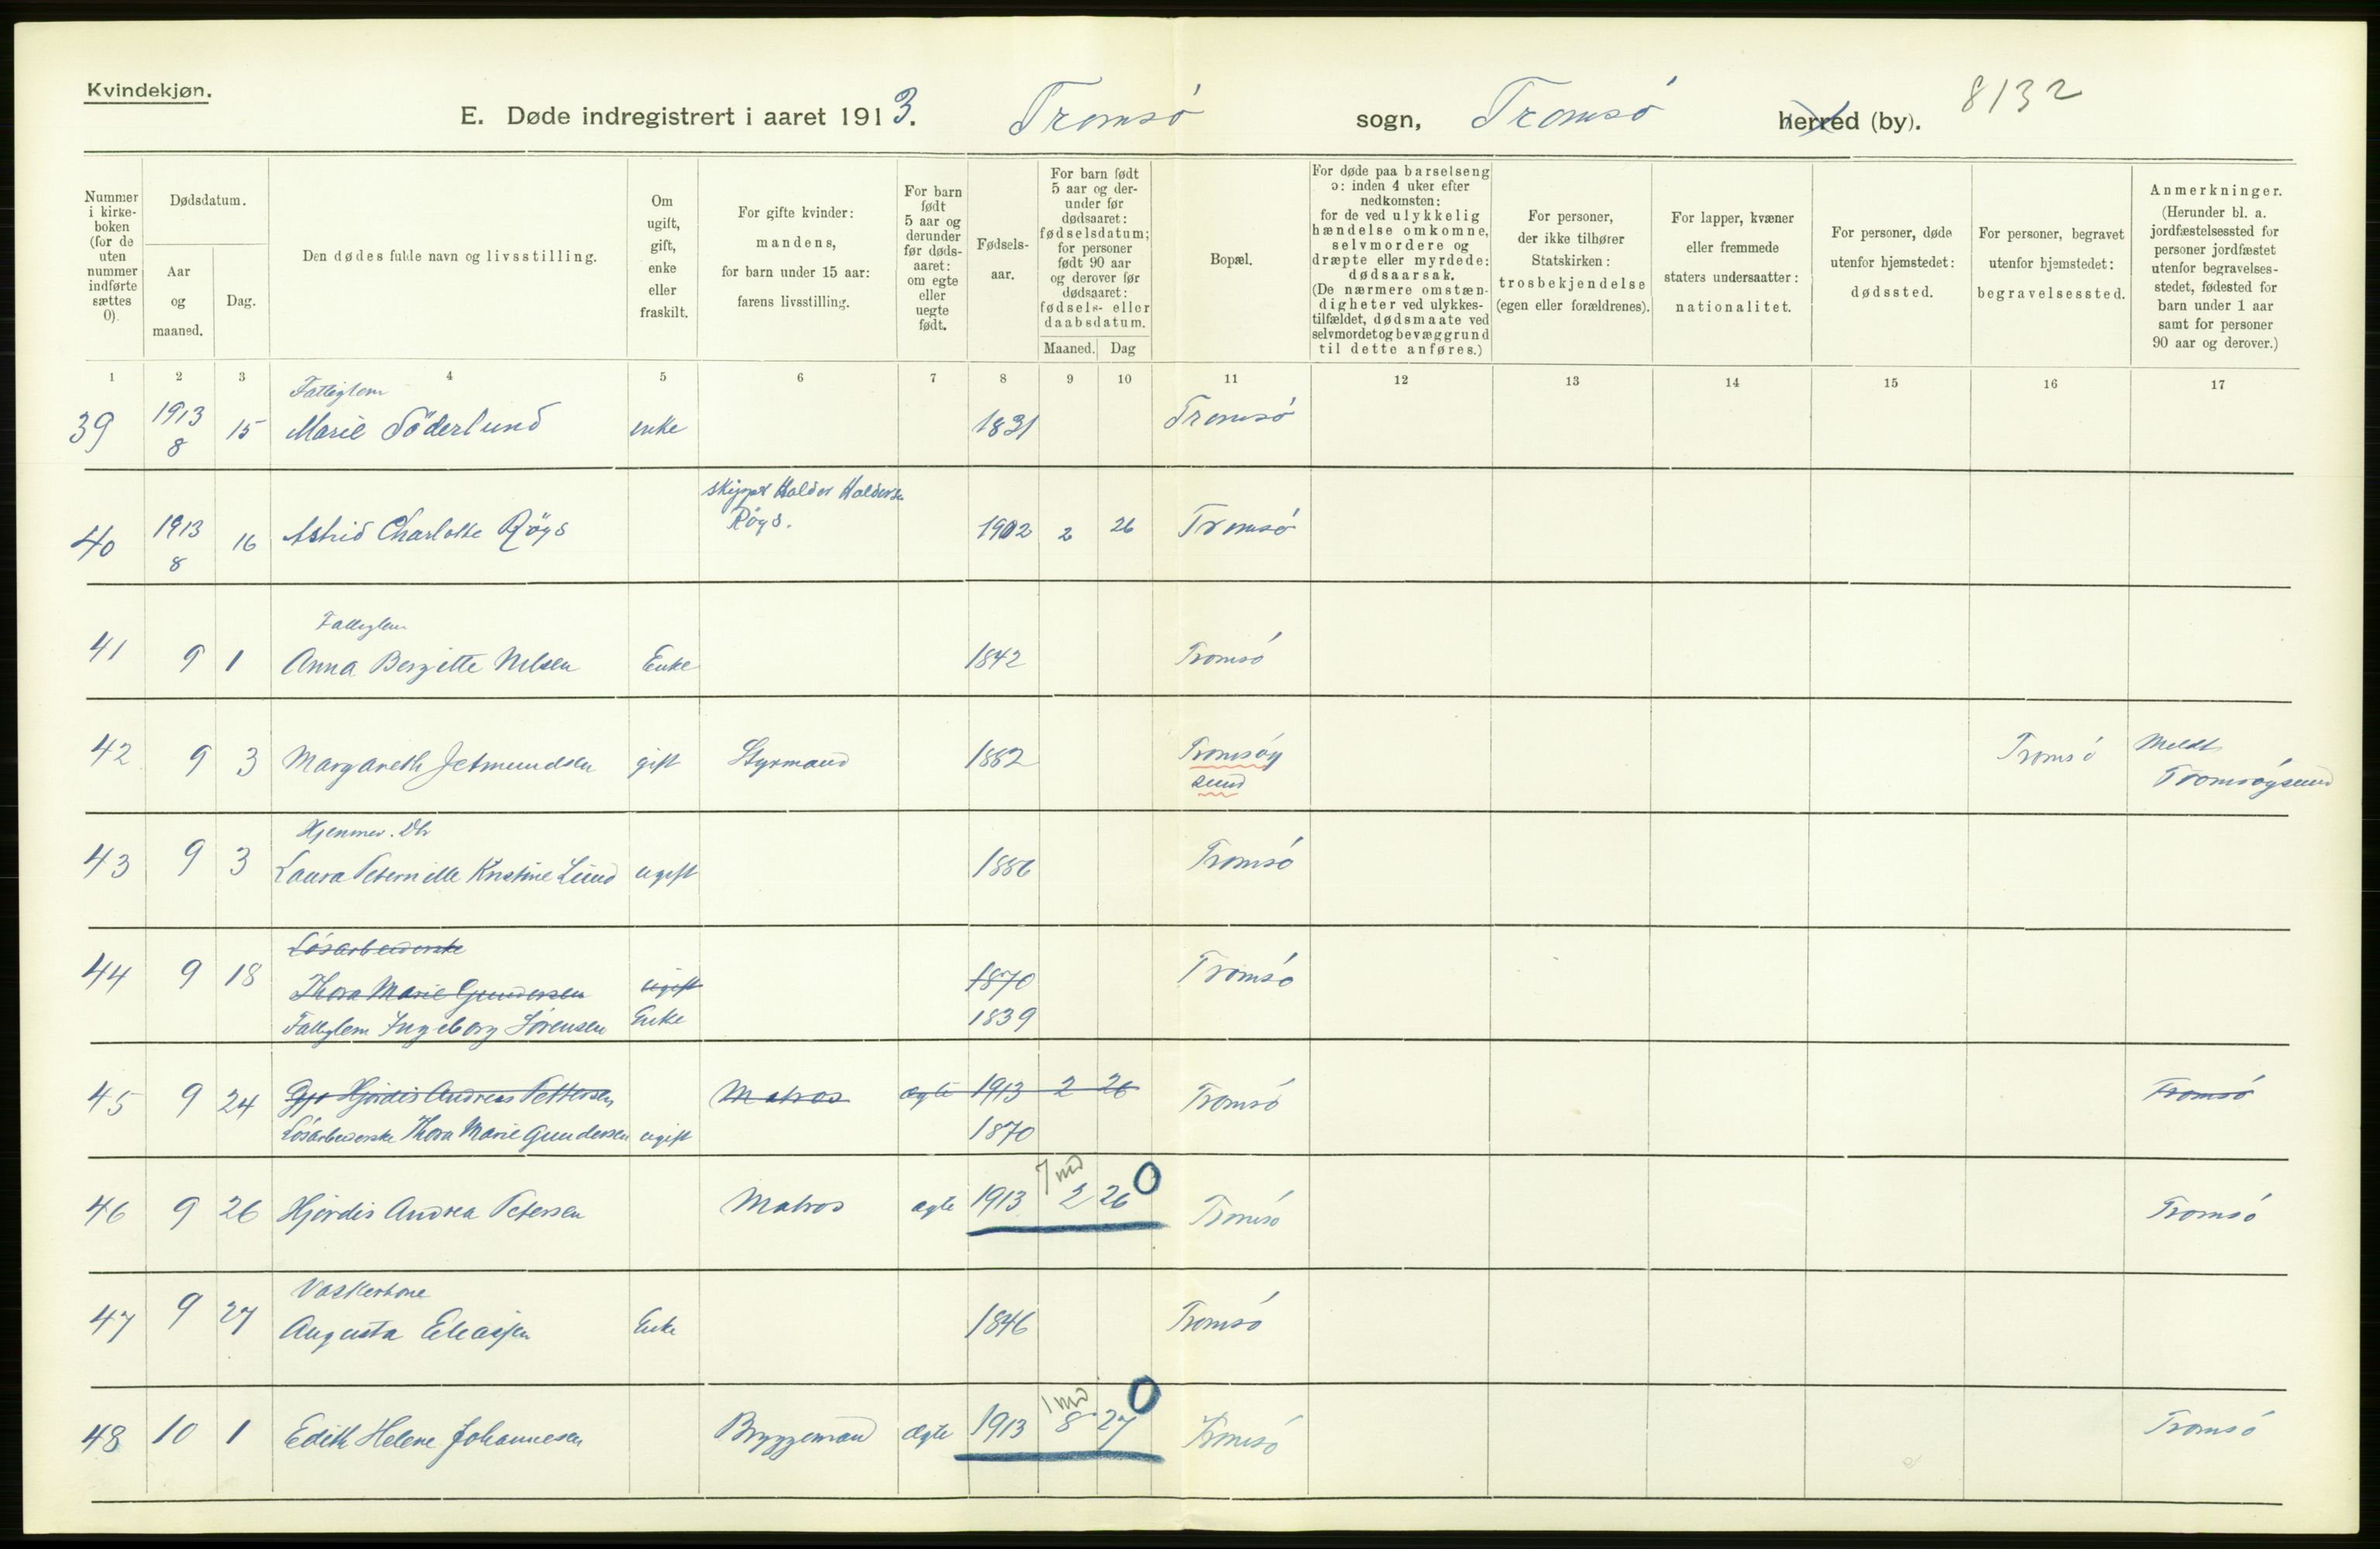 Kvindekjøn.
E. Døde indregistrert i aaret 1913. Tromsø sogn, Tromsø herred (by). 8132
Nummer i kirke- boken (for de uten nummer indførte sættes 0).
Dødsdatum.
Aar og maaned.
Dag.
Den dødes fulde navn og livsstilling.
Om ugift, gift, enke eller fraskilt.
For gifte kvinder: mandens, for barn under 15 aar: farens livsstilling.
For barn født 5 aar og derunder før døds- aaret: om egte eller uegte født.
Fødsels- aar.
For barn født 5 aar og der- under før dødsaaret: fødselsdatum; for personer født 90 aar og derover før dødsaaret: fødsels- eller daabsdatum.
Maaned. Dag
Bopæl.
For døde paa barselseng ɔ: inden 4 uker efter nedkomsten: for de ved ulykkelig hændelse omkomne, selvmordere og dræpte eller myrdede: dødsaarsak. (De nærmere omstæn- digheter ved ulykkes- tilfældet, dødsmaate ved selvmordet og bevæggrund til dette anføres.)
For personer, der ikke tilhører Statskirken: trosbekjendelse (egen eller forældrenes).
For lapper, kvæner eller fremmede staters undersaatter: nationalitet.
For personer, døde utenfor hjemstedet: dødssted.
For personer, begravet utenfor hjemstedet: begravelsessted.
Anmerkninger. (Herunder bl. a. jordfæstelsessted for personer jordfæstet utenfor begravelses- stedet, fødested for barn under 1 aar samt for personer 90 aar og derover.)
1 2 3 4 5 6 7 8 9 10 11 12 13 14 15 16 17
Fattiglem
39 1913 8 15 Marie Söderlund enke 1831 Tromsø
skipper Haldor Haldorsen
40 1913 8 16 Astrid Charlotte Röys Röys. 1912 2 26 Tromsø
Fattiglem
41 9 1 Anna Bergitte Nilsen Enke 1842 Tromsø
42 9 3 Margareth Jetmundsen gift Styrmand 1882 Tromsøy sund Tromsø Meldt Tromsøysund
Hjemmev. Dtr
43 9 3 Laura Peternille Kristine Lund ugift 1886 Tromsø
Løsarbeiderske
44 9 18 Thora Marie Gundersen ugift 1870 Tromsø
Fattiglem Ingeborg Sørensen Enke 1839
45 9 24 Hjørdis Andrea Pettersen Matros ægte 1913 2 26 Tromsø Tromsø
Løsarbeiderske Thora Marie Gundersen ugift 1870
7 md 0
46 9 26 Hjørdis Andrea Petersen Matros ægte 1913 2 26 Tromsø Tromsø
Vaskerkone
47 9 27 Augusta Eliasjen Enke 1846 Tromsø
1 md 0
48 10 1 Edith Helene Johannesen Bryggemand ægte 1913 8 27 Tromsø Tromsø